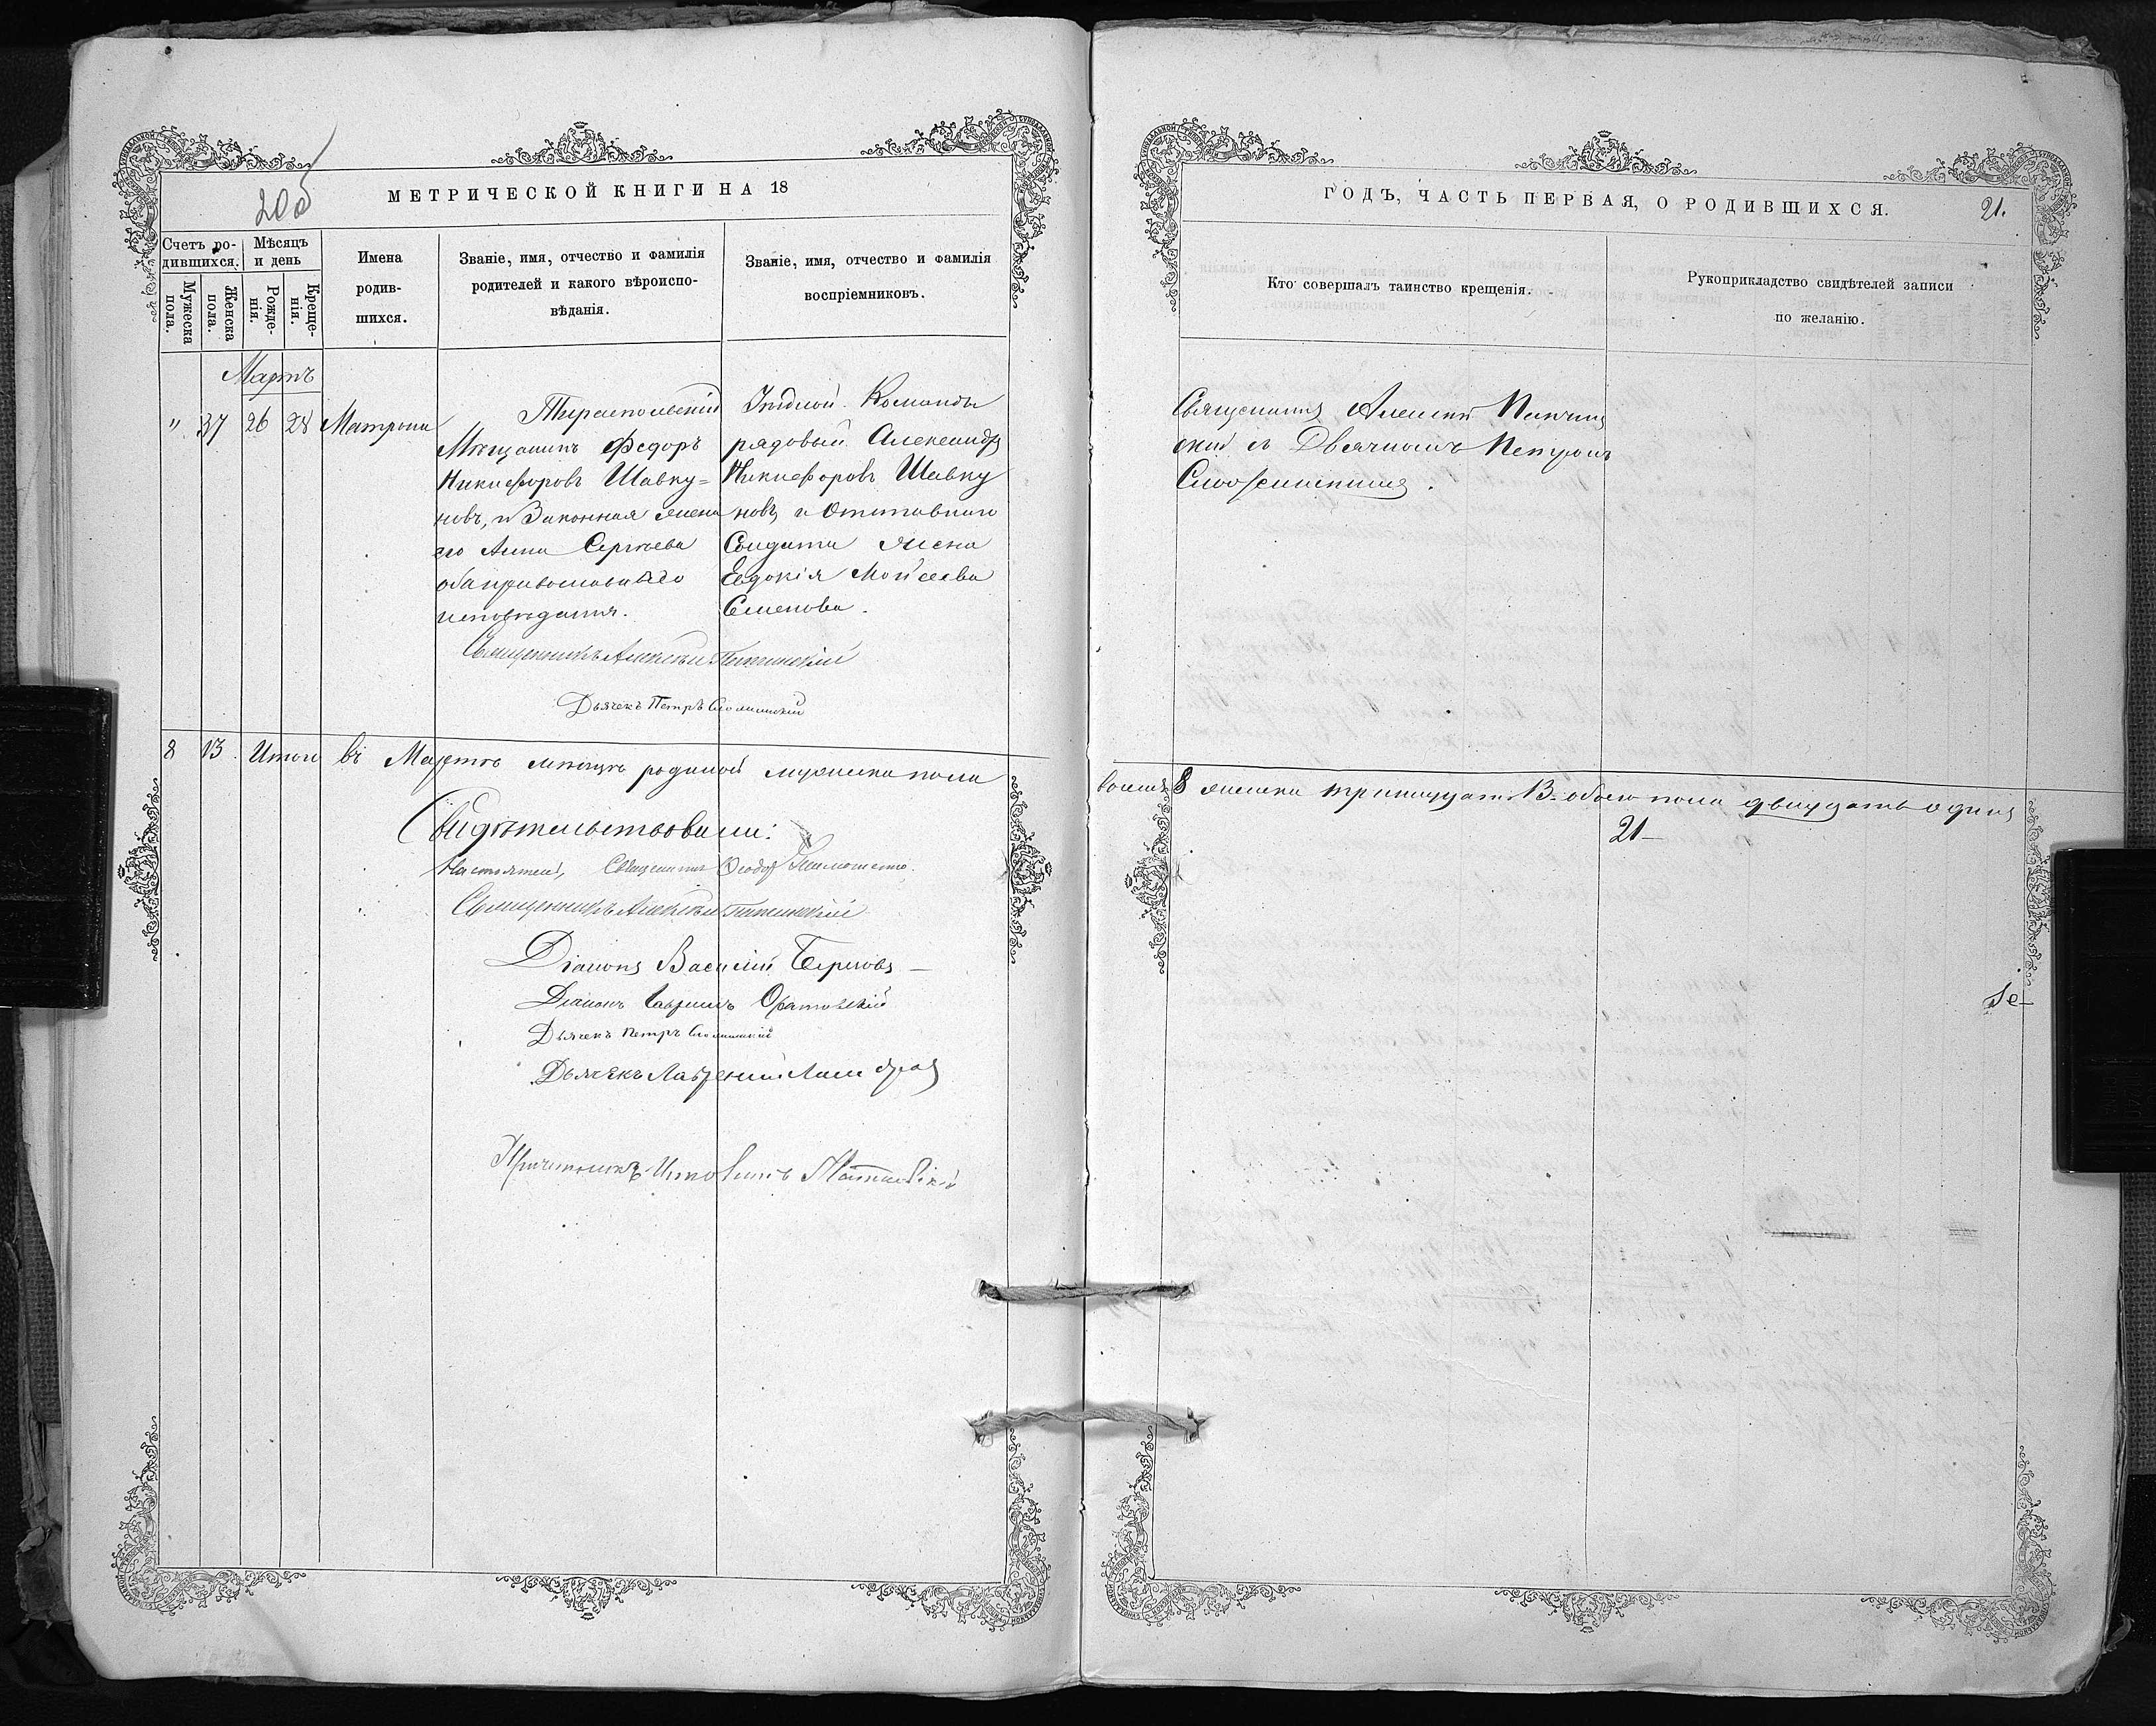 20об
МЕТРИЧЕСКОЙ КНИГИ НА 18
Счетъ ро-
дившихся.
Мѣсяцъ
и день
Мужеска
пола.
Женска
пола.
Рожде-
нія.
Креще-
нія.
Имена
родив-
шихся.
Званіе, имя, отчество и фамилія
родителей и какого вѣроиспо-
вѣданія.
Званіе, имя, отчество и фамилія
воспріемниковъ.
Мартъ
" 37 26 28 Матрона
Тираспольскій
Мѣщанинъ Федоръ
Никифоровъ Шавку=
новъ, и Законная жена
его Анна Сергѣева
оба православнаго
исповѣданія.
Уѣздной Команды
рядовый Александръ
Никифоровъ Шавку
новъ и Отставнаго
Солдата жена
Евдокія Мойсеева
Семенова.
Священникъ Алексѣй
Дьячекъ Петръ
8 13. Итого въ Мартѣ мѣсяцѣ родилось мужеска пола
Свидѣтельствовали:
Настоятель, Священникъ Феодоръ
Священникъ Алексѣй
Діаконъ Василій
Діаконъ Гавріилъ
Дьячекъ Петръ
Дьячекъ Лаврентій
ГОДЪ, ЧАСТЬ ПЕРВАЯ, О РОДИВШИХСЯ.
21.
Кто совершалъ таинство крещенія.
Рукоприкладство свидѣтелей записи
по желанію.
Священникъ Алексѣй
скій съ Дьячкомъ Петромъ
восемь 8 женска тринадцать 13 обоего пола двадцать одинъ
21-